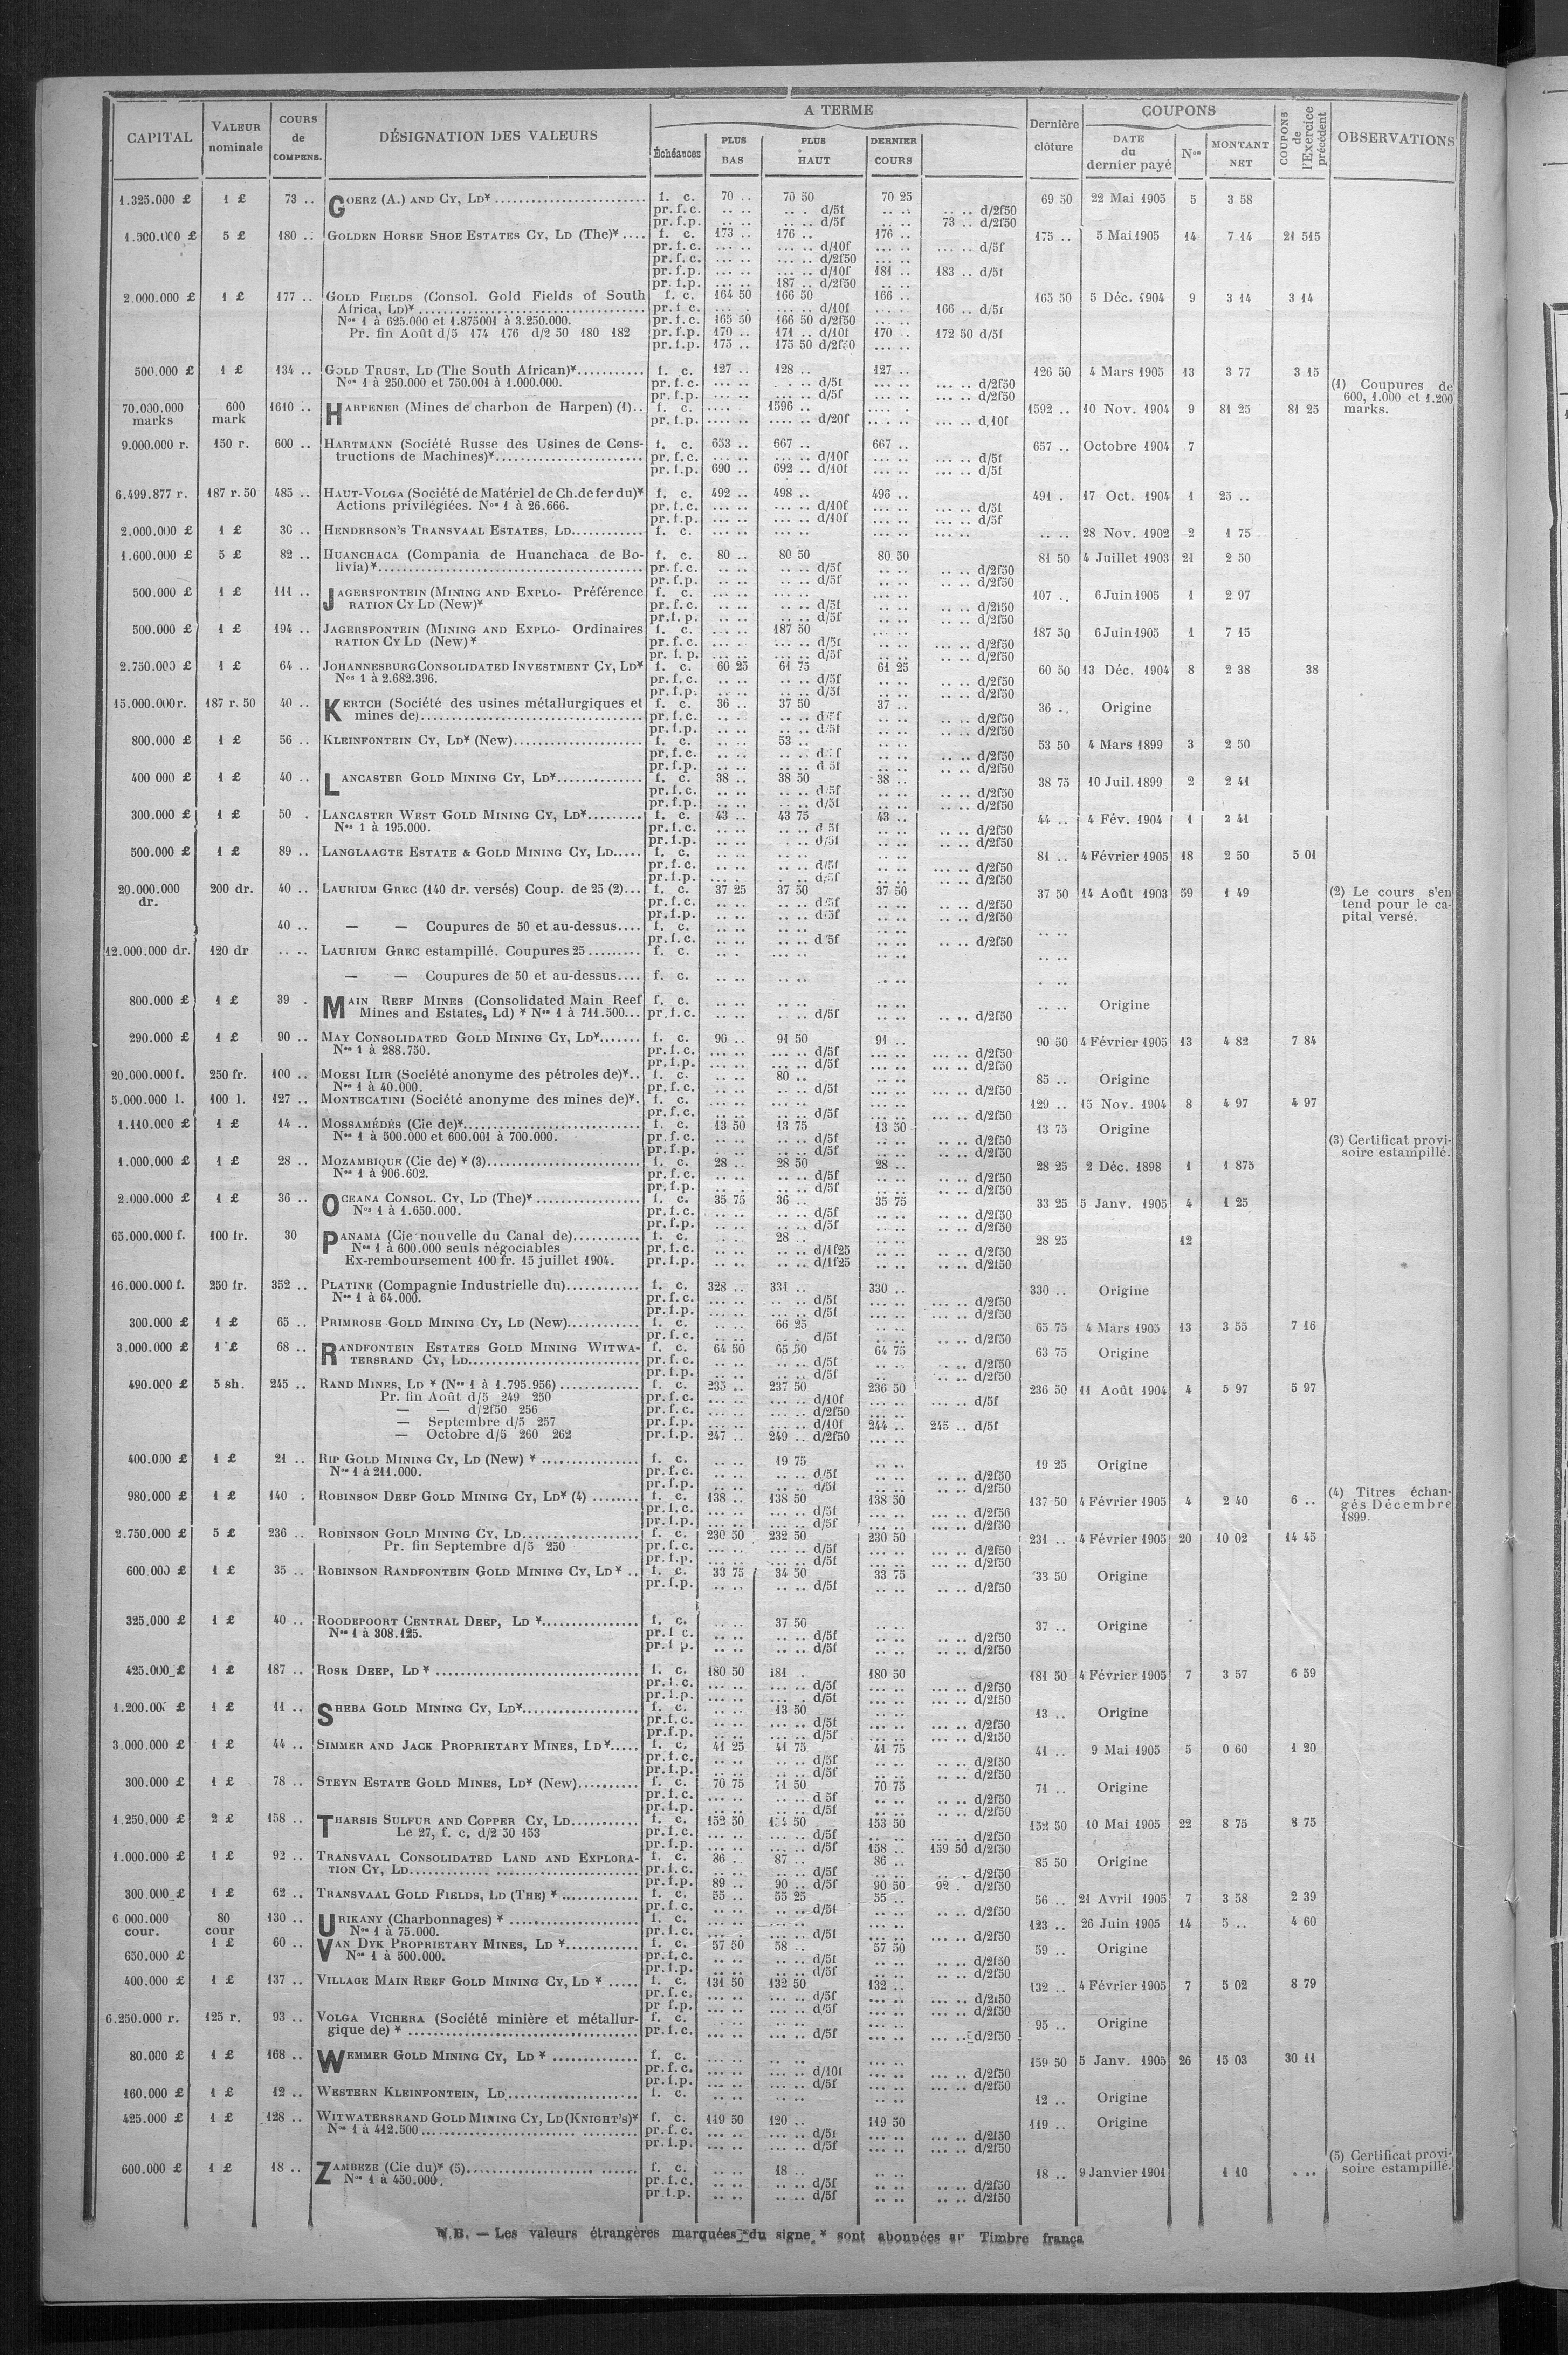 CAPITAL | VALEUR nominale | COURS de COMPENS. | DÉSIGNATION DES VALEURS | A TERME | Dernière clôture | COUPONS | COUPONS de l'Exercice précédent | OBSERVATIONS
Échéances | PLUS BAS | PLUS HAUT | DERNIER COURS | DATE du dernier payé | Nos | MONTANT NET
1.325.000 £ | 1 £ | 73 .. | GOERZ (A.) AND CY, LD* | f. c. | 70 .. | 70 50 | 70 25 | 69 50 | 22 Mai 1905 | 5 | 3 58
pr. f. c. | .. .. | .. . d/5f | .. .. | .. .. d/2f50
pr. f.p. | .. .. | .. .. d/5f | .. .. | 73 .. d/2f50
1.500.000 £ | 5 £ | 180 .. | GOLDEN HORSE SHOE ESTATES CY, LD (The)* | f. c. | 173 .. | 176 .. | 176 .. | 175 .. | 5 Mai 1905 | 14 | 7 14 | 21 515
pr. f. c. | ... .. | ... .. d/10f | ... .. | ... .. d/5f
pr. f. c. | ... .. | ... .. d/2f50
pr. f.p. | ... .. | ... .. d/10f | 181 .. | 183 .. d/5f
pr. f.p. | ... .. | 187 .. d/2f50
2.000.000 £ | 1 £ | 177 .. | GOLD FIELDS (Consol. Gold Fields of South | f. c. | 164 50 | 166 50 | 166 .. | 165 50 | 5 Déc. 1904 | 9 | 3 14 | 3 14
Africa, LD)* | pr. f. c. | ... . | ... .. d/10f | ... .. | 166 .. d/5f
Nos 1 à 625.000 et 1.875001 à 3.250.000. | pr. f. c. | 165 50 | 166 50 d/2f50
Pr. fin Août d/5 174 176 d/2 50 180 182 | pr. f.p. | 170 .. | 171 .. d/10f | 170 .. | 172 50 d/5f
pr. f.p. | 175 .. | 175 50 d/2f50 | ... ..
500.000 £ | 1 £ | 134 .. | GOLD TRUST, LD (The South African)* | f. c. | 127 .. | 128 .. | 127 .. | 126 50 | 4 Mars 1905 | 13 | 3 77 | 3 15
Nos 1 à 250.000 et 750.001 à 1.000.000. | pr. f. c. | d/5f | d/2f50 | (1) Coupures de
pr. f.p. | d/5f | d/2f50 | 600, 1.000 et 1.200
70.000.000 marks | 600 mark | 1610 .. | HARPENER (Mines de charbon de Harpen) (1).. | f. c. | .... | 1596 .. | 1592 .. | 10 Nov. 1904 | 9 | 81 25 | 81 25 | marks.
pr. f.p. | d/20f | d,10f
9.000.000 r. | 150 r. | 600 .. | HARTMANN (Société Russe des Usines de Cons- | f. c. | 653 .. | 667 .. | 667 .. | 657 .. | Octobre 1904 | 7
tructions de Machines)* | pr. f. c. | d/10f | d/5f
pr. f.p. | 690 .. | 692 .. d/10f | d/5f
6.499.877 r. | 187 r. 50 | 485 .. | HAUT-VOLGA (Société de Matériel de Ch. de fer du)* | f. c. | 492 .. | 498 .. | 496 .. | 491 . | 17 Oct. 1904 | 1 | 25 ..
Actions privilégiées. Nos 1 à 26.666. | pr. f. c. | d/10f | d/5f
pr. f.p. | d/10f | d/5f
2.000.000 £ | 1 £ | 30 .. | HENDERSON'S TRANSVAAL ESTATES, LD | f. c. | .. .. | 28 Nov. 1902 | 2 | 1 75
1.600.000 £ | 5 £ | 82 .. | HUANCHACA (Compania de Huanchaca de Bo- | f. c. | 80 .. | 80 50 | 80 50 | 81 50 | 4 Juillet 1903 | 21 | 2 50
livia)* | pr. f. c. | d/5f | d/2f50
pr. f.p. | d/5f | d/2f50
500.000 £ | 1 £ | 111 .. | JAGERSFONTEIN (MINING AND EXPLO- Préférence | f. c. | 107 .. | 6 Juin 1905 | 1 | 2 97
RATION CY LD (New)* | pr. f. c. | d/5f | d/2f50
pr. f.p. | d/5f | d/2f50
500.000 £ | 1 £ | 194 .. | JAGERSFONTEIN (MINING AND EXPLO- Ordinaires | f. c. | 187 50 | 187 50 | 6 Juin 1905 | 1 | 7 15
RATION CY LD (New)* | pr. f. c. | d/5f | d/2f50
pr. f. p. | d/5f | d/2f50
2.750.000 £ | 1 £ | 64 .. | JOHANNESBURG CONSOLIDATED INVESTMENT CY, LD* | f. c. | 60 25 | 61 75 | 61 25 | 60 50 | 13 Déc. 1904 | 8 | 2 38 | 38
Nos 1 à 2.682.396. | pr. f. c. | d/5f | d/2f50
pr. f.p. | d/5f | d/2f50
15.000.000 r. | 187 r. 50 | 40 .. | KERTCH (Société des usines métallurgiques et | f. c. | 36 .. | 37 50 | 37 .. | 36 .. | Origine
mines de) | pr. f. c. | d/5f | d/2f50
pr. f.p. | d/5f | d/2f50
800.000 £ | 1 £ | 56 .. | KLEINFONTEIN CY, LD* (New) | f. c. | 53 .. | 53 50 | 4 Mars 1899 | 3 | 2 50
pr. f. c. | d/5f | d/2f50
pr. f.p. | d/5f | d/2f50
400 000 £ | 1 £ | 40 .. | LANCASTER GOLD MINING CY, LD* | f. c. | 38 .. | 38 50 | 38 .. | 38 75 | 10 Juil. 1899 | 2 | 2 41
pr. f. c. | d/5f | d/2f50
pr. f.p. | d/5f | d/2f50
300.000 £ | 1 £ | 50 . | LANCASTER WEST GOLD MINING CY, LD* | f. c. | 43 .. | 43 75 | 43 .. | 44 .. | 4 Fév. 1904 | 1 | 2 41
Nos 1 à 195.000. | pr. f. c. | d/5f | d/2f50
pr. f.p. | d/5f | d/2f50
500.000 £ | 1 £ | 89 .. | LANGLAAGTE ESTATE & GOLD MINING CY, LD | f. c. | 81 .. | 4 Février 1905 | 18 | 2 50 | 5 01
pr. f. c. | d/5f | d/2f50
pr. f.p. | d/5f | d/2f50
20.000.000 dr. | 200 dr. | 40 .. | LAURIUM GREC (140 dr. versés) Coup. de 25 (2) | f. c. | 37 25 | 37 50 | 37 50 | 37 50 | 14 Août 1903 | 59 | 1 49 | (2) Le cours s'en
pr. f. c. | d/5f | d/2f50 | tend pour le ca-
pr. f.p. | d/5f | d/2f50 | pital versé.
40 .. | — — Coupures de 50 et au-dessus | f. c.
pr. f. c. | d/5f | d/2f50
12.000.000 dr. | 120 dr | .. .. | LAURIUM GREC estampillé. Coupures 25 | f. c.
— — Coupures de 50 et au-dessus | f. c.
800.000 £ | 1 £ | 39 . | MAIN REEF MINES (Consolidated Main Reef | f. c. | .. .. | Origine
Mines and Estates, Ld) * Nos 1 à 711.500 | pr. f. c. | d/5f | d/2f50
290.000 £ | 1 £ | 90 .. | MAY CONSOLIDATED GOLD MINING CY, LD* | f. c. | 90 .. | 91 50 | 91 .. | 90 50 | 4 Février 1905 | 13 | 4 82 | 7 84
Nos 1 à 288.750. | pr. f. c. | d/5f | d/2f50
pr. f.p. | d/5f | d/2f50
20.000.000 f. | 250 fr. | 100 .. | MOESI ILIR (Société anonyme des pétroles de)* | f. c. | 80 .. | 85 .. | Origine
Nos 1 à 40.000. | pr. f. c. | d/5f | d/2f50
5.000.000 l. | 100 l. | 127 .. | MONTECATINI (Société anonyme des mines de)* | f. c. | 129 .. | 15 Nov. 1904 | 8 | 4 97 | 4 97
pr. f. c. | d/5f | d/2f50
1.110.000 £ | 1 £ | 14 .. | MOSSAMÉDÈS (Cie de)* | f. c. | 13 50 | 13 75 | 13 50 | 13 75 | Origine
Nos 1 à 500.000 et 600.001 à 700.000. | pr. f. c. | d/5f | d/2f50 | (3) Certificat provi-
pr. f.p. | d/5f | d/2f50 | soire estampillé.
1.000.000 £ | 1 £ | 28 .. | MOZAMBIQUE (Cie de) * (3) | f. c. | 28 .. | 28 50 | 28 .. | 28 25 | 2 Déc. 1898 | 1 | 1 875
Nos 1 à 906.602. | pr. f. c. | d/5f | d/2f50
pr. f.p. | d/5f | d/2f50
2.000.000 £ | 1 £ | 36 .. | OCEANA CONSOL. CY, LD (The)* | f. c. | 35 75 | 36 .. | 35 75 | 33 25 | 5 Janv. 1905 | 4 | 1 25
Nos 1 à 1.650.000. | pr. f. c. | d/5f | d/2f50
pr. f.p. | d/5f | d/2f50
65.000.000 f. | 100 fr. | 30 | PANAMA (Cie nouvelle du Canal de) | f. c. | 28 .. | 28 25 | 12
Nos 1 à 600.000 seuls négociables | pr. f. c. | d/1f25 | d/2f50
Ex-remboursement 100 fr. 15 juillet 1904. | pr. f.p. | d/1f25 | d/2f50
16.000.000 f. | 250 fr. | 352 .. | PLATINE (Compagnie Industrielle du) | f. c. | 328 .. | 331 .. | 330 .. | 330 .. | Origine
Nos 1 à 64.000. | pr. f. c. | d/5f | d/2f50
pr. f.p. | d/5f | d/2f50
300.000 £ | 1 £ | 65 .. | PRIMROSE GOLD MINING CY, LD (New) | f. c. | 66 25 | 65 75 | 4 Mars 1905 | 13 | 3 55 | 7 16
pr. f. c. | d/5f | d/2f50
3.000.000 £ | 1 £ | 68 .. | RANDFONTEIN ESTATES GOLD MINING WITWA- | f. c. | 64 50 | 65 50 | 64 75 | 63 75 | Origine
TERSRAND CY, LD | pr. f. c. | d/5f | d/2f50
pr. f.p. | d/5f | d/2f50
490.000 £ | 5 sh. | 245 .. | RAND MINES, LD * (Nos 1 à 1.795.956) | f. c. | 235 .. | 237 50 | 236 50 | 236 50 | 11 Août 1904 | 4 | 5 97 | 5 97
Pr. fin Août d/5 249 250 | pr. f. c. | d/10f | d/5f
— — d/2f50 256 | pr. f. c. | d/2f50
— Septembre d/5 257 | pr. f.p. | d/10f | 244 .. | 245 .. d/5f
— Octobre d/5 260 262 | pr. f.p. | 247 .. | 249 .. d/2f50
400.000 £ | 1 £ | 21 .. | RIP GOLD MINING CY, LD (New) * | f. c. | 19 75 | 19 25 | Origine
Nos 1 à 211.000. | pr. f. c. | d/5f | d/2f50
pr. f.p. | d/5f | d/2f50
980.000 £ | 1 £ | 140 . | ROBINSON DEEP GOLD MINING CY, LD* (4) | f. c. | 138 .. | 138 50 | 138 50 | 137 50 | 4 Février 1905 | 4 | 2 40 | 6 .. | (4) Titres échan-
pr. f. c. | d/5f | d/2f50 | gés Décembre
pr. f.p. | d/5f | d/2f50 | 1899.
2.750.000 £ | 5 £ | 236 .. | ROBINSON GOLD MINING CY, LD | f. c. | 230 50 | 232 50 | 230 50 | 231 .. | 4 Février 1905 | 20 | 10 02 | 14 45
Pr. fin Septembre d/5 250 | pr. f. c. | d/5f | d/2f50
pr. f.p. | d/5f | d/2f50
600.000 £ | 1 £ | 35 .. | ROBINSON RANDFONTEIN GOLD MINING CY, LD * | f. c. | 33 75 | 34 50 | 33 75 | 33 50 | Origine
pr. f.p. | d/5f | d/2f50
325.000 £ | 1 £ | 40 .. | ROODEPOORT CENTRAL DEEP, LD * | f. c. | 37 50 | 37 .. | Origine
Nos 1 à 308.125. | pr. f c. | d/5f | d/2f50
pr. f p. | d/5f | d/2f50
425.000 £ | 1 £ | 187 .. | ROSE DEEP, LD * | f. c. | 180 50 | 181 .. | 180 50 | 181 50 | 4 Février 1905 | 7 | 3 57 | 6 59
pr. f. c. | d/5f | d/2f50
pr. f.p. | d/5f | d/2f50
1.200.00 £ | 1 £ | 11 .. | SHEBA GOLD MINING CY, LD* | f. c. | 13 50 | 13 .. | Origine
pr. f. c. | d/5f | d/2f50
pr. f.p. | d/5f | d/2f50
3.000.000 £ | 1 £ | 44 .. | SIMMER AND JACK PROPRIETARY MINES, LD* | f. c. | 41 25 | 41 75 | 41 75 | 41 .. | 9 Mai 1905 | 5 | 0 60 | 1 20
pr. f. c. | d/5f | d/2f50
pr. f.p. | d/5f | d/2f50
300.000 £ | 1 £ | 78 .. | STEYN ESTATE GOLD MINES, LD* (New) | f. c. | 70 75 | 71 50 | 70 75 | 71 .. | Origine
pr. f. c. | d 5f | d/2f50
pr. f.p. | d/5f | d/2f50
1.250.000 £ | 2 £ | 158 .. | THARSIS SULFUR AND COPPER CY, LD | f. c. | 152 50 | 154 50 | 153 50 | 152 50 | 10 Mai 1905 | 22 | 8 75 | 8 75
Le 27, f. c. d/2 50 153 | pr. f. c. | d/5f | d/2f50
pr. f.p. | d/5f | 158 .. | 159 50 d/2f50
1.000.000 £ | 1 £ | 92 .. | TRANSVAAL CONSOLIDATED LAND AND EXPLORA- | f. c. | 86 .. | 87 .. | 86 .. | 85 50 | Origine
TION CY, LD | pr. f. c. | d/5f | d/2f50
pr. f.p. | 89 .. | 90 .. d/5f | 90 50 | 92 . d/2f50
300 000 £ | 1 £ | 62 .. | TRANSVAAL GOLD FIELDS, LD (THE) * | f. c. | 55 .. | 55 25 | 55 .. | 56 .. | 21 Avril 1905 | 7 | 3 58 | 2 39
pr. f. c. | d/5f | d/2f50
6 000.000 cour. | 80 cour | 130 .. | URIKANY (Charbonnages) * | f. c. | 123 .. | 26 Juin 1905 | 14 | 5 .. | 4 60
Nos 1 à 75.000. | pr. f. c. | d/5f | d/2f50
650.000 £ | 1 £ | 60 .. | VAN DYK PROPRIETARY MINES, LD * | f. c. | 57 50 | 58 .. | 57 50 | 59 .. | Origine
Nos 1 à 500.000. | pr. f. c. | d/5f | d/2f50
pr. f.p. | d/5f | d/2f50
400.000 £ | 1 £ | 137 .. | VILLAGE MAIN REEF GOLD MINING CY, LD * | f. c. | 131 50 | 132 50 | 132 .. | 132 .. | 4 Février 1905 | 7 | 5 02 | 8 79
pr. f. c. | d/5f | d/2f50
pr f.p. | d/5f | d/2f50
6.250.000 r. | 125 r. | 93 .. | VOLGA VICHERA (Société minière et métallur- | f. c. | 95 .. | Origine
gique de) * | pr. f. c. | d/5f | d/2f50
80.000 £ | 1 £ | 168 .. | WEMMER GOLD MINING CY, LD * | f. c. | 159 50 | 5 Janv. 1905 | 26 | 15 03 | 30 11
pr. f. c. | d/10f | d/2f50
pr. f.p. | d/5f | d/2f50
160.000 £ | 1 £ | 12 .. | WESTERN KLEINFONTEIN, LD | f. c. | 12 .. | Origine
425.000 £ | 1 £ | 128 .. | WITWATERSRAND GOLD MINING CY, LD (KNIGHT'S)* | f. c. | 119 50 | 120 .. | 119 50 | 119 .. | Origine
Nos 1 à 412.500 | pr. f. c. | d/5f | d/2f50
pr. f.p. | d/5f | d/2f50 | (5) Certificat provi-
600.000 £ | 1 £ | 18 .. | ZAMBEZE (Cie du)* (5) | f. c. | 18 .. | 18 .. | 9 Janvier 1901 | 1 10 | soire estampillé.
Nos 1 à 450.000. | pr. f. c. | d/5f | d/2f50
pr. f.p. | d/5f | d/2f50
N.B. — Les valeurs étrangères marquées du signe * sont abonnées au Timbre frança